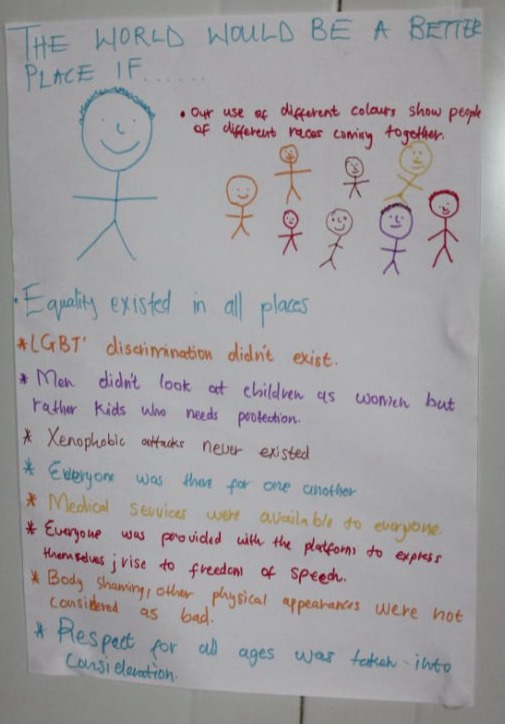 THE WORLD WOULD BE A BETTER
PLACE IF......
• Our use of different colours show people
of different races coming together.
• Equality existed in all places
* LGBT' discrimination didn't exist.
* Men didn't look at children as women but
rather kids who needs protection.
* Xenophobic attacks never existed
* Everyone was there for one another
* Medical services were available to everyone.
* Everyone was provided with the platform to express
themselves ; rise to freedom of speech.
* Body shaming, other physical appearances were not
considered as bad.
* Respect for all ages was taken into
consideration.